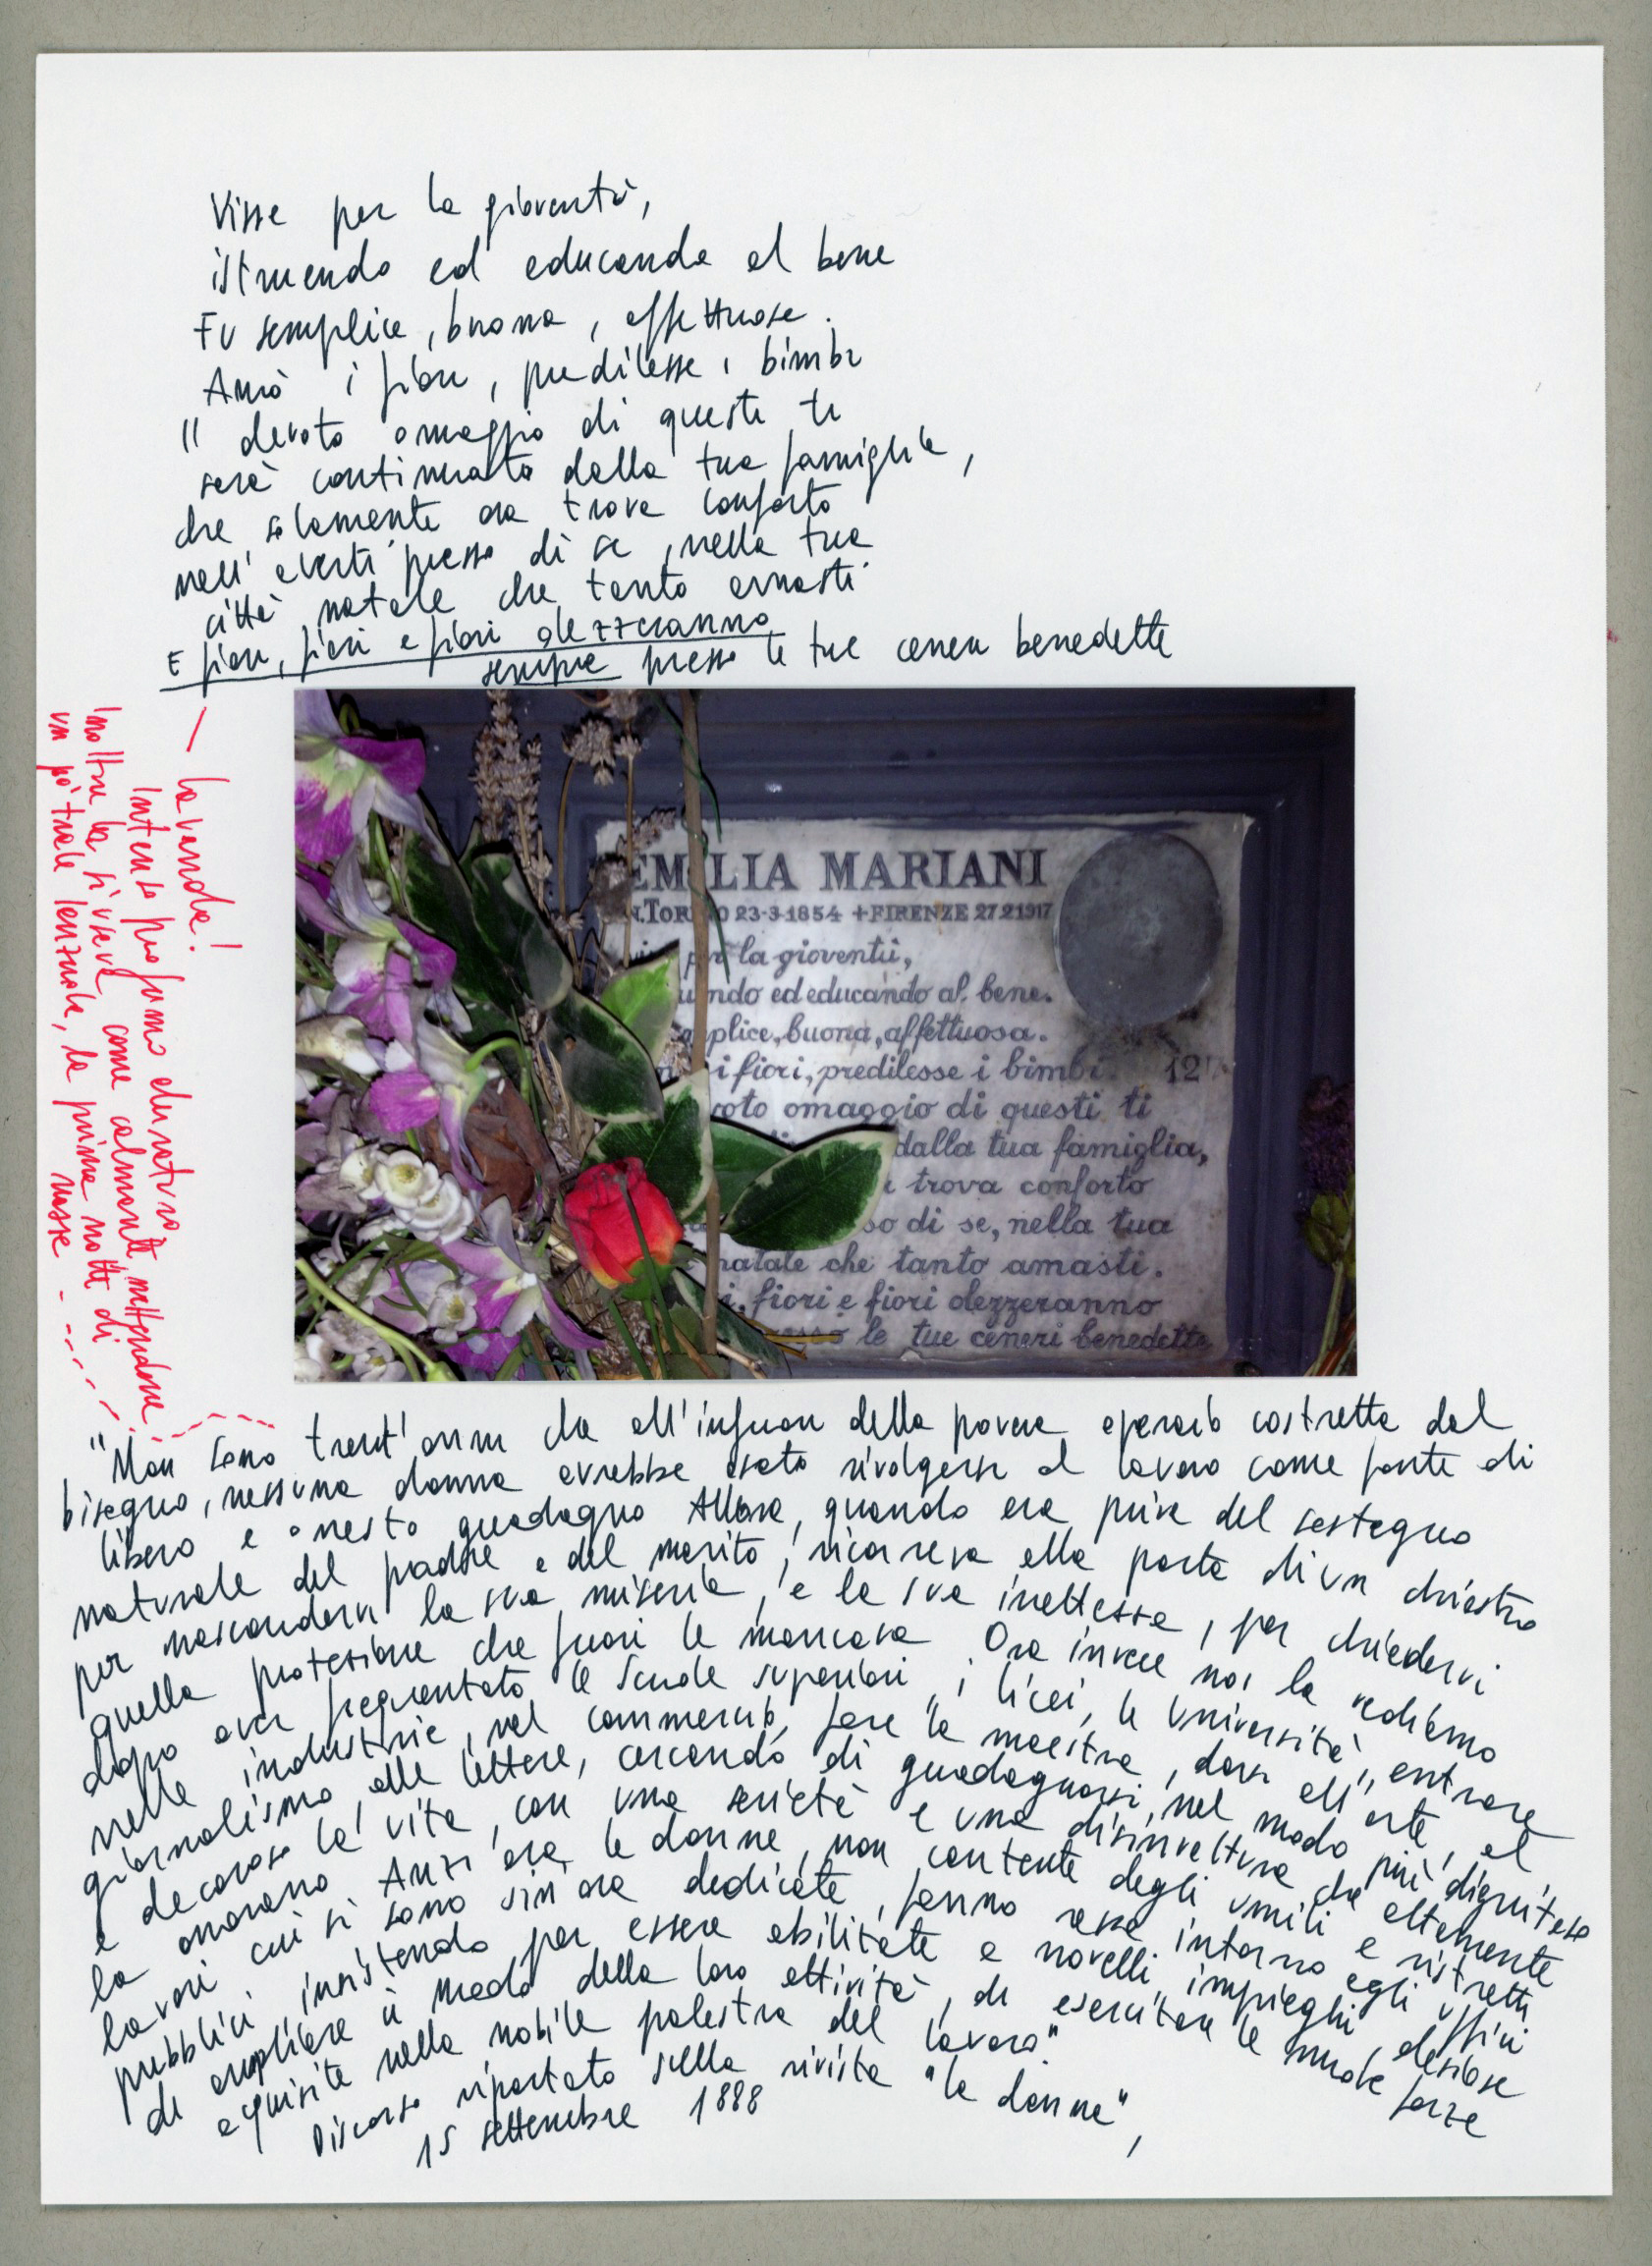 Visse per la gioventù,
istruendo ed educando al bene
Fu semplice, buona, affettuosa.
Amò i fiori, predilesse i bimbi
Il devoto omaggio di questi ti
serà continuato dalla tua famiglia,
che solamente ora trova conforto
nell'averti presso di se, nella tua
città natale che tanto amasti
E fiori, fiori e fiori olezzeranno
sempre presso le tue ceneri benedette
— lavanda!
Intenso profumo duraturo
Inoltre la si usava come calmante, mettendone
un po' tra le lenzuola, la prima notte di
nozze
EMILIA MARIANI
N. TORINO 23-3-1854 + FIRENZE 27 2 1917
la gioventù,
uendo ed educando al bene.
mplice, buona, affettuosa.
i fiori, predilesse i bimbi. 12
voto omaggio di questi ti
dalla tua famiglia,
trova conforto
so di se, nella tua
natale che tanto amasti.
i, fiori e fiori olezzeranno
presso le tue ceneri benedette
"Non sono trent'anni che all'infuori della povera operaia costretta dal
bisogno, nessuna donna avrebbe osato rivolgersi al lavoro come fonte di
libero e onesto guadagno Allora, quando era priva del sostegno
naturale del padre e del marito, ricorreva alla porta di un chiostro
per nascondervi la sua miseria, e la sua inettezza, per chiedervi
quella protezione che fuori le mancava Ora invece noi la vediamo
dopo aver frequentato le Scuole superiori, i licei, le Università, entrare
nelle industrie, nel commercio, fare la maestra, darsi all'arte, al
giornalismo, alle lettere, cercando di guadagnarsi nel modo più dignitoso
e decoroso la vita, con una serietà e una disinvoltura che altamente
la onorano Anzi ora le donne, non contente degli umili e ristretti
lavori cui si sono sin'ora dedicate, fanno ressa intorno agli uffici
pubblici insistendo per essere abilitate a novelli impieghi, desiose
di ampliare il modo della loro attività, di esercitare le nuove forze
acquisite nella nobile palestra del lavoro."
Discorso riportato sulla rivista "la donna",
15 settembre 1888